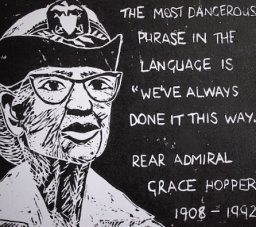 THE MOST DANGEROUS
PHRASE IN THE
LANGUAGE IS
"WE'VE ALWAYS
DONE IT THIS WAY.
REAR ADMIRAL
GRACE HOPPER
1908 - 1992